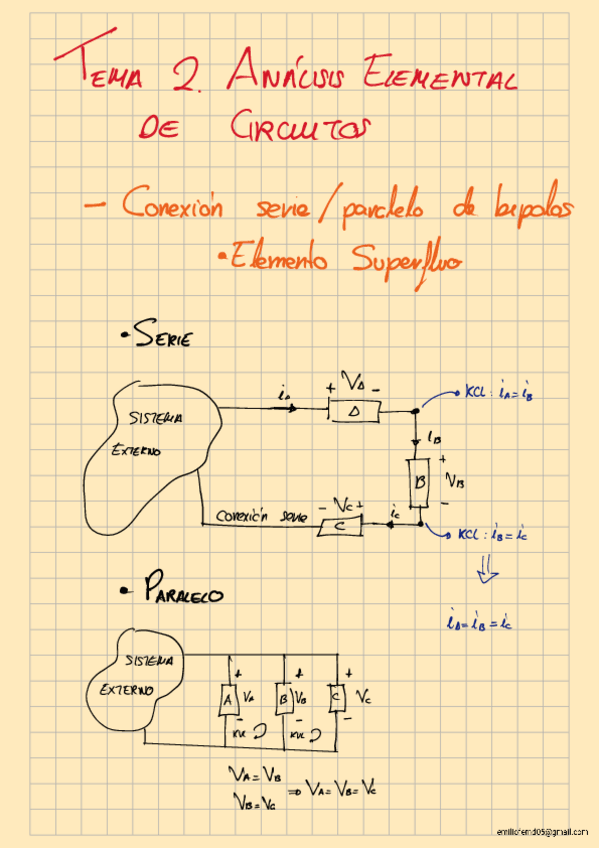 TEMA 2. ANÁLISIS ELEMENTAL
DE CIRCUITOS
- Conexión serie/paralelo de bipolos
• Elemento Superfluo
• SERIE
SISTEMA
EXTERNO
iA
+ VA -
A
KCL: iA = iB
iB
+
B VB
-
- VC +
conexión serie
C
iC
KCL: iB = iC
⇓
iA = iB = iC
• PARALELO
SISTEMA
EXTERNO
+ + +
A VA B VB C VC
- - -
KVL KVL
VA = VB
⇒ VA = VB = VC
VB = VC
emiliofernd05@gmail.com